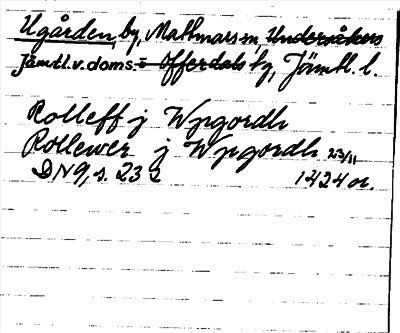 Ugården, by, Mattmars sn, Undersåkers
Jämtl. v. doms. - Offerdals tg, Jämtl. l.
Rolleff j Wpgordh
Rollewer j Wpgordh 23/11
DN 9, s. 232 1424 or.